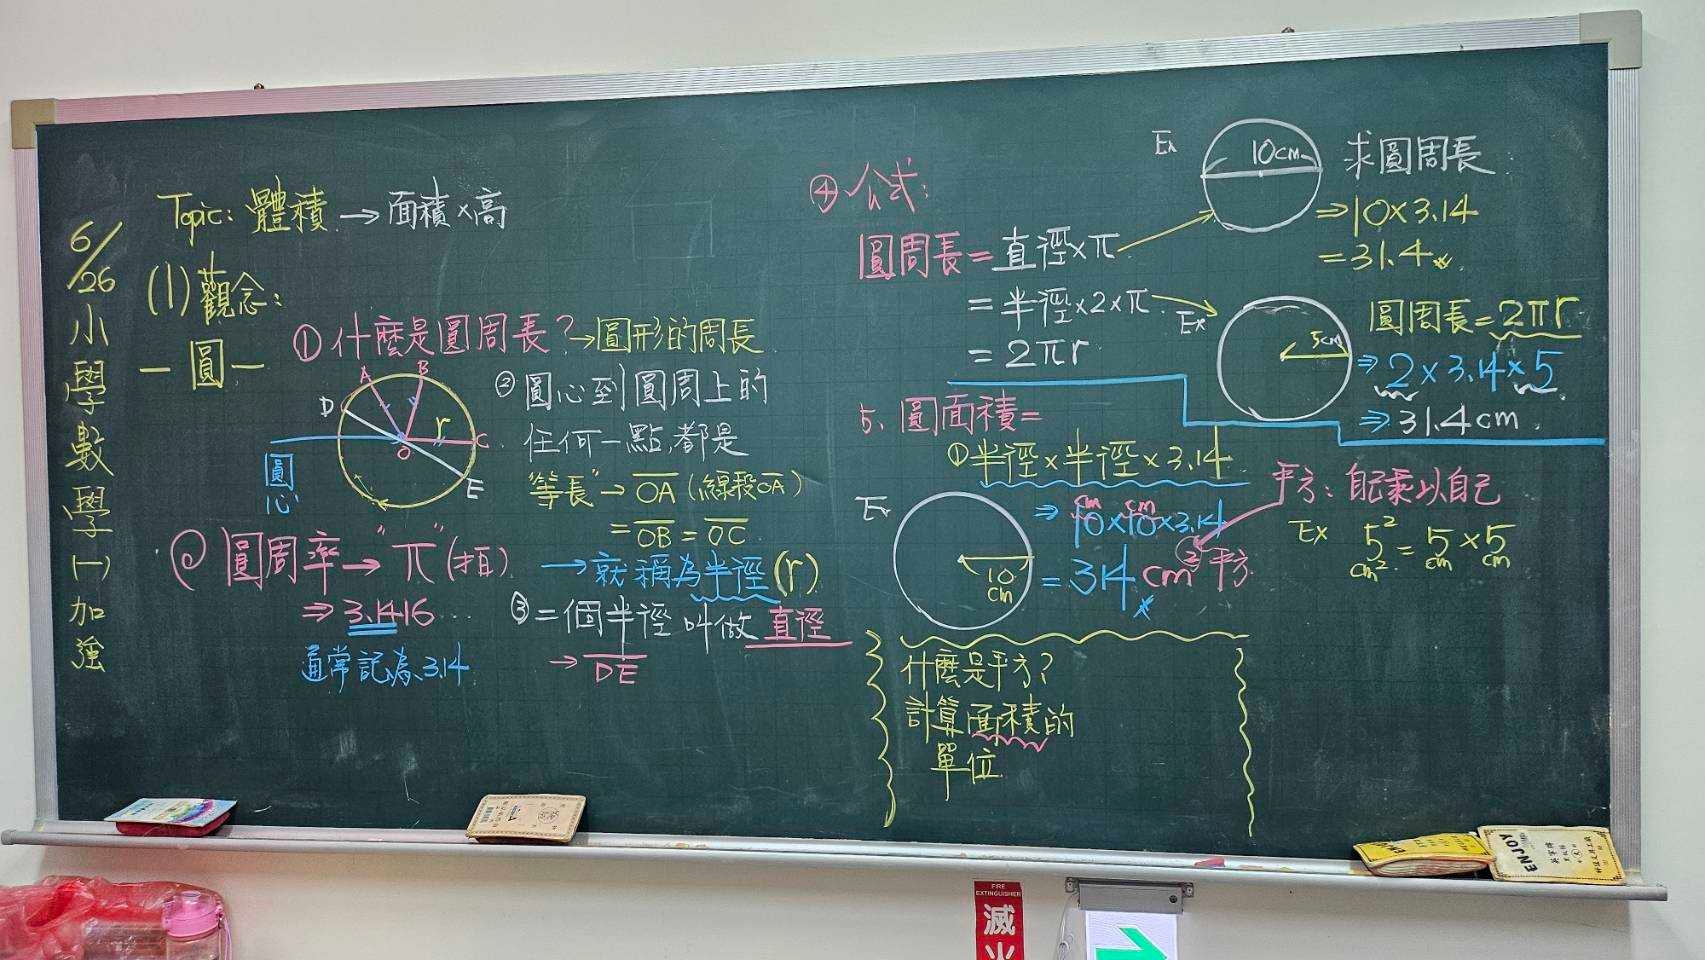 6/26 小學數學(一)加強
Topic: 體積 → 面積×高
(1) 觀念:
— 圓 —
① 什麼是圓周長? → 圓形的周長
A
B
C
D
E
O
r
圓心
② 圓心到圓周上的
任何一點,都是
"等長" → OA (線段OA)
= OB = OC
→ 就稱為半徑(r)
③ 二個半徑叫做直徑
→ DE
圓周率 → "π" (拍)
⇒ 3.1416...
通常記為3.14
④ 公式:
圓周長 = 直徑×π
= 半徑×2×π
= 2πr
Ex
10cm
求圓周長
⇒ 10×3.14
= 31.4
Ex
5cm
圓周長=2πr
⇒ 2×3.14×5
⇒ 31.4cm.
5. 圓面積=
① 半徑×半徑×3.14
Ex
10
cm
cm cm
⇒ 10×10×3.14
= 314 cm² 平方
平方: 自己乘以自己
Ex 5² = 5 × 5
cm² cm cm
什麼是平方?
計算面積的
單位
ENJOY
FIRE
EXTINGUISHER
滅
火